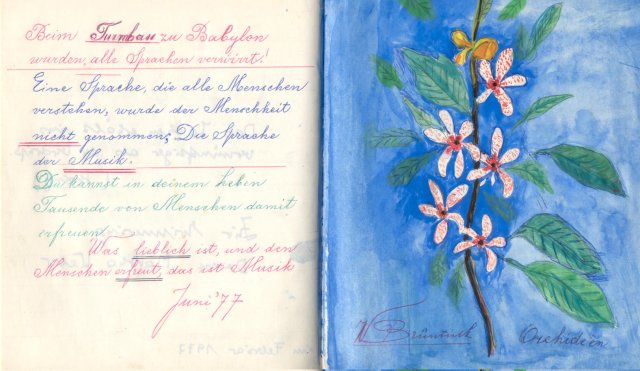 Beim Turmbau zu Babylon
wurden, alle Sprachen verwirrt!
Eine Sprache, die alle Menschen
verstehen, wurde der Menschheit
nicht genommen; Die Sprache
der Musik.
Du kannst in deinem Leben
Tausende von Menschen damit
erfreuen.
Was lieblich ist, und den
Menschen erfreut, das ist Musik
Juni '77
Orchideen
im Februar 1977